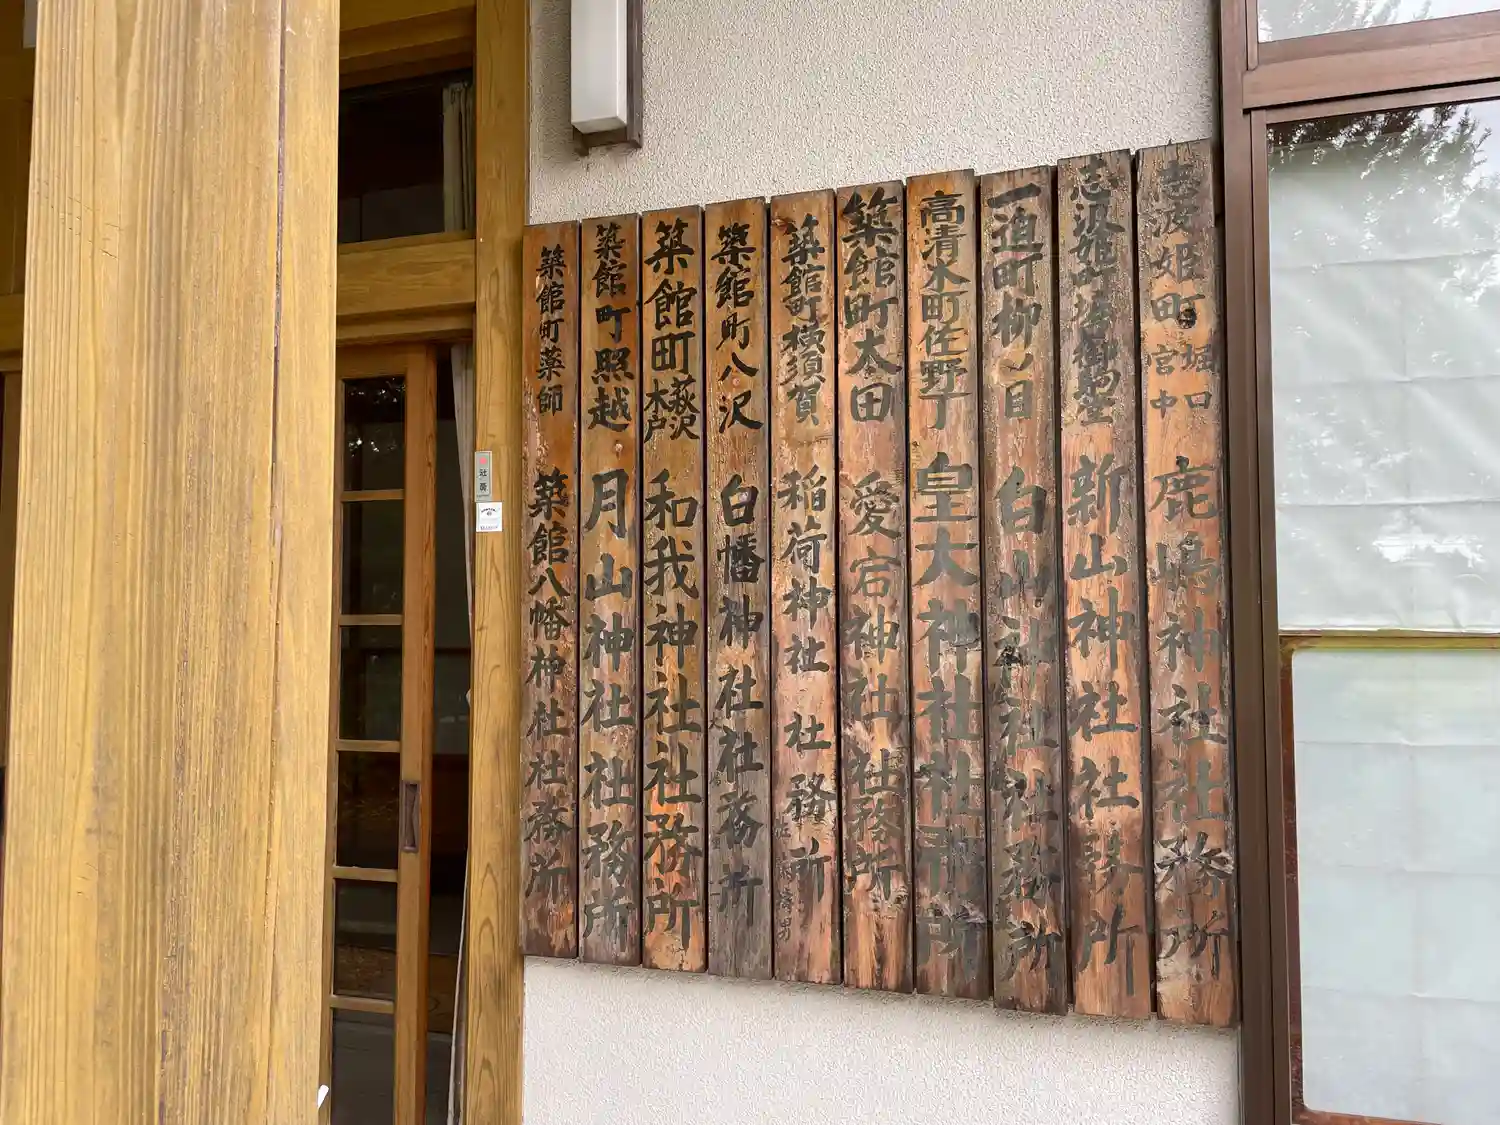 志波姫町 堀口 宮中 鹿嶋神社社務所
志波姫町 新山神社社務所
一迫町柳ノ目 白山神社社務所
高清水町佐野丁 皇大神社社務所
築館町太田 愛宕神社社務所
築館町横須賀 稲荷神社 社務所
築館町八沢 白幡神社社務所
築館町 萩沢 木戸 和我神社社務所
築館町照越 月山神社社務所
築館町薬師 築館八幡神社社務所